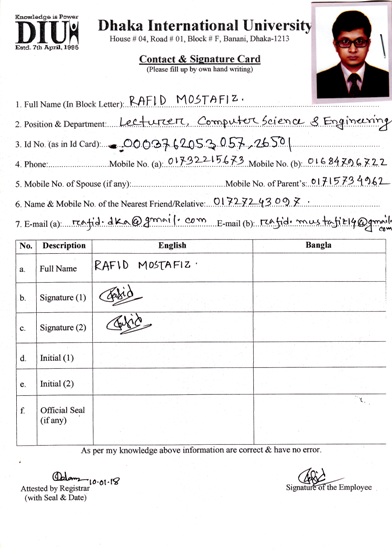 Knowledge is Power
DIU
Estd. 7th April, 1995
Dhaka International University
House # 04, Road # 01, Block # F, Banani, Dhaka-1213
Contact & Signature Card
(Please fill up by own hand writing)
1. Full Name (In Block Letter): RAFID MOSTAFIZ.
2. Position & Department: Lecturer, Computer Science & Engineering
3. Id No. (as in Id Card): 0003762053.057.26501
4. Phone: Mobile No. (a): 01732215673 Mobile No. (b): 01684796722
5. Mobile No. of Spouse (if any): Mobile No. of Parent's: 01715734962
6. Name & Mobile No. of the Nearest Friend/Relative: 01727243097.
7. E-mail (a): rafid.dka@gmail.com E-mail (b): rafid.mustafiz14@gmail.com
No. Description English Bangla
a. Full Name RAFID MOSTAFIZ.
b. Signature (1) Rafid
c. Signature (2) Rafid
d. Initial (1)
e. Initial (2)
f. Official Seal
(if any)
As per my knowledge above information are correct & have no error.
10-01-18 Rafid
Attested by Registrar Signature of the Employee
(with Seal & Date)